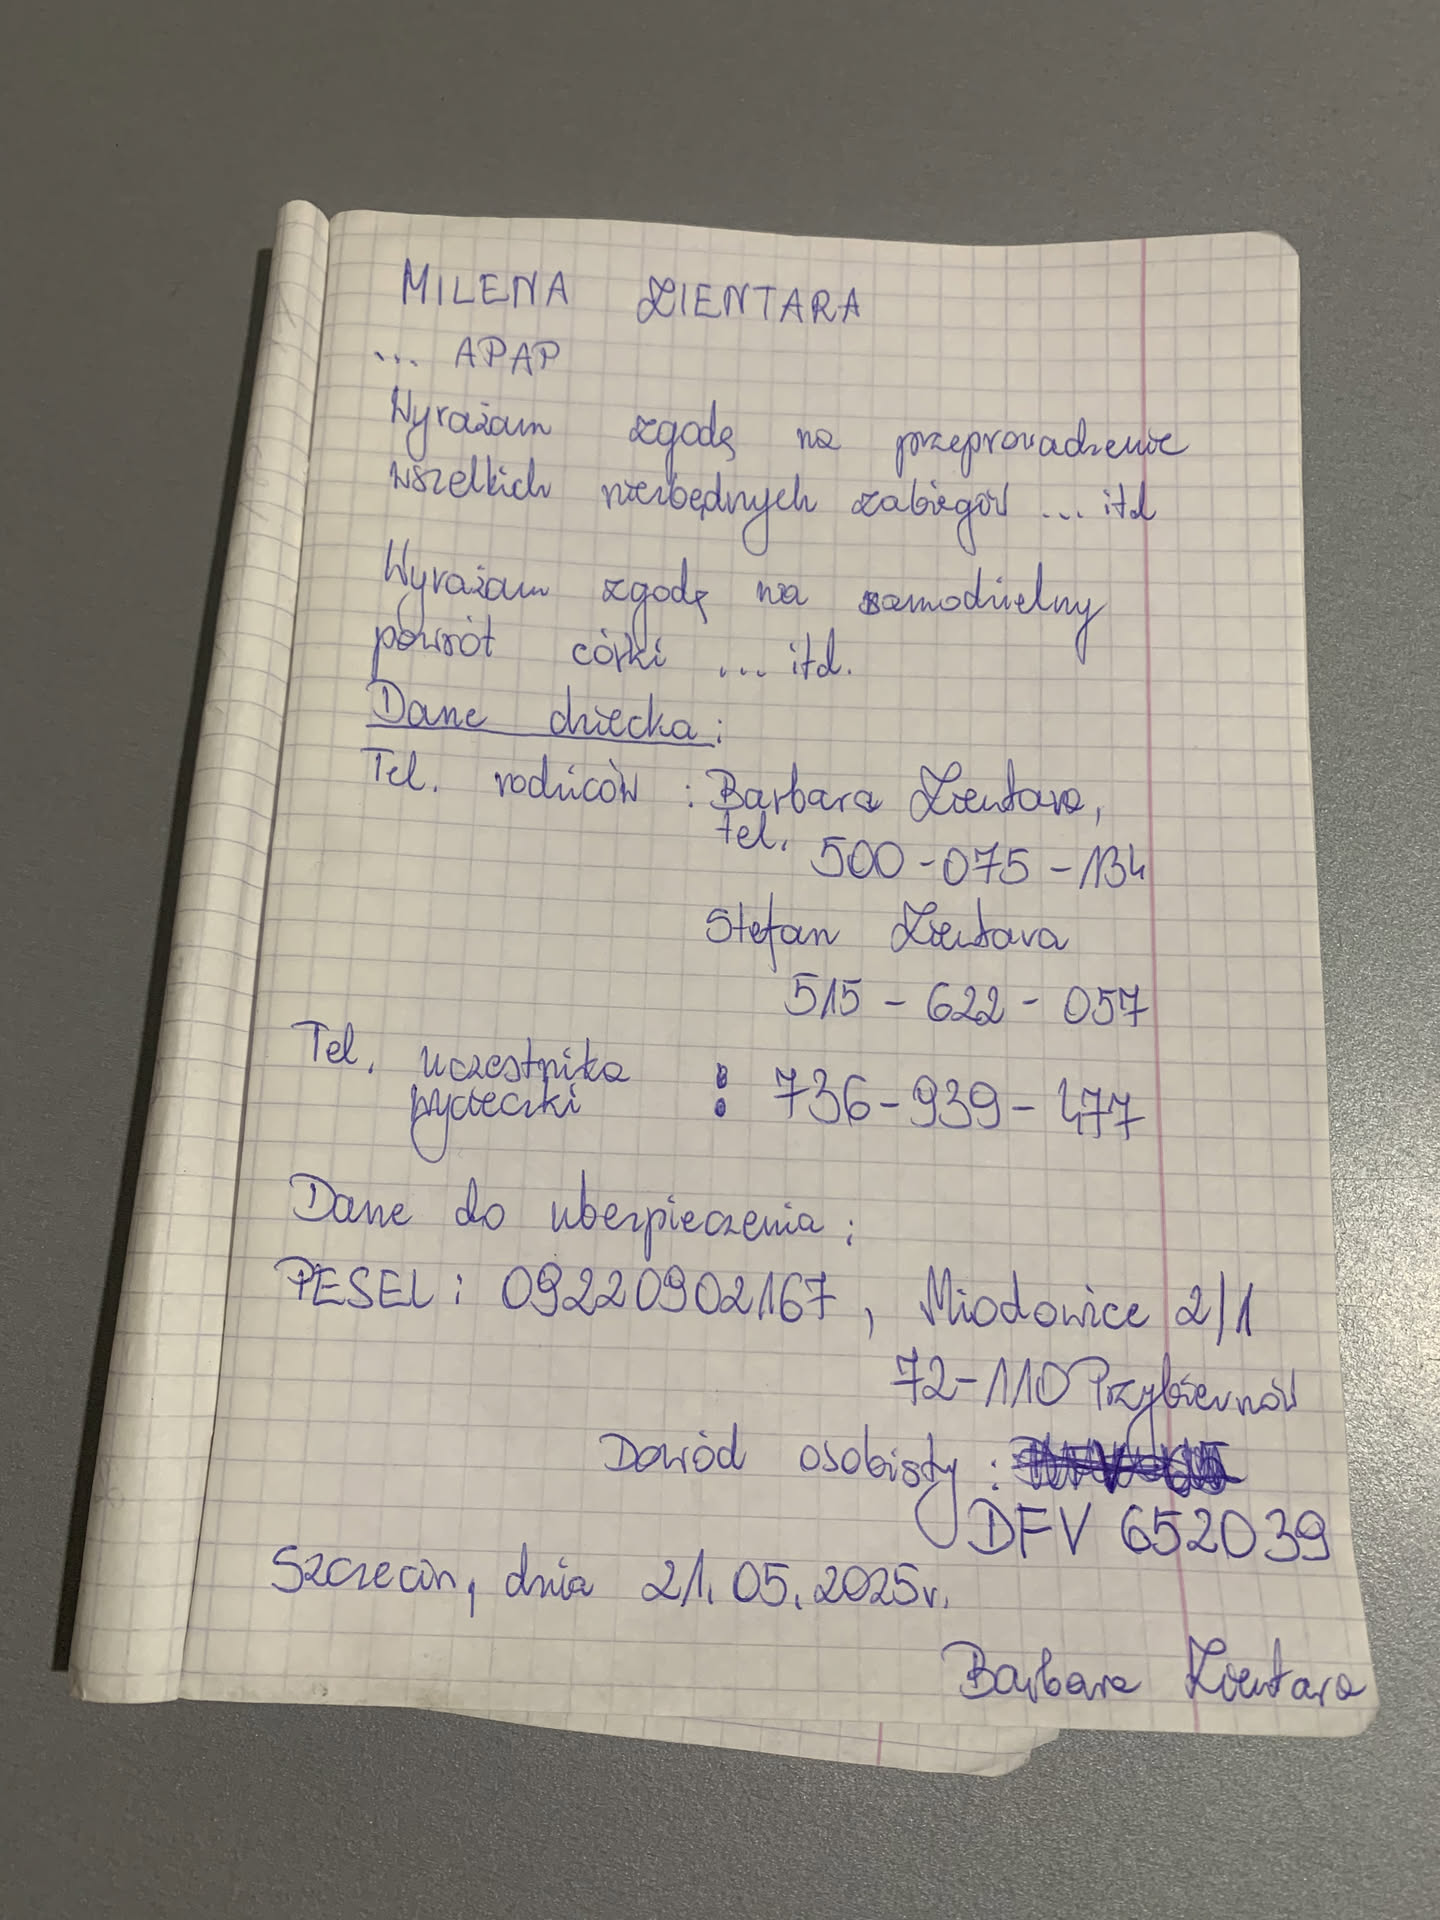 MILENA ZIENTARA
... APAP
Wyrażam zgodę na przeprowadzenie
wszelkich niezbędnych zabiegów ... itd
Wyrażam zgodę na samodzielny
powrót córki ... itd.
Dane dziecka:
Tel. rodziców : Barbara Zientara,
tel. 500-075-134
Stefan Zientara
515-622-057
Tel. uczestnika : 736-939-477
wycieczki
Dane do ubezpieczenia:
PESEL: 09220902167, Miodowice 2/1
72-110 Przybiernów
Dowód osobisty:
DFV 652039
Szczecin, dnia 21.05.2025r.
Barbara Zientara